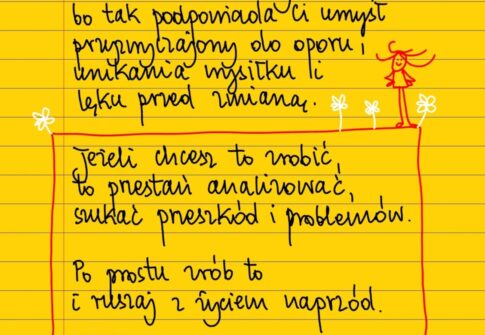 bo tak podpowiada Ci umysł
przyzwyczajony do oporu,
unikania wysiłku li
lęku przed zmianą.
Jeżeli chcesz to zrobić,
to przestań analizować,
szukać przeszkód i problemów.
Po prostu zrób to
i ruszaj z życiem naprzód.